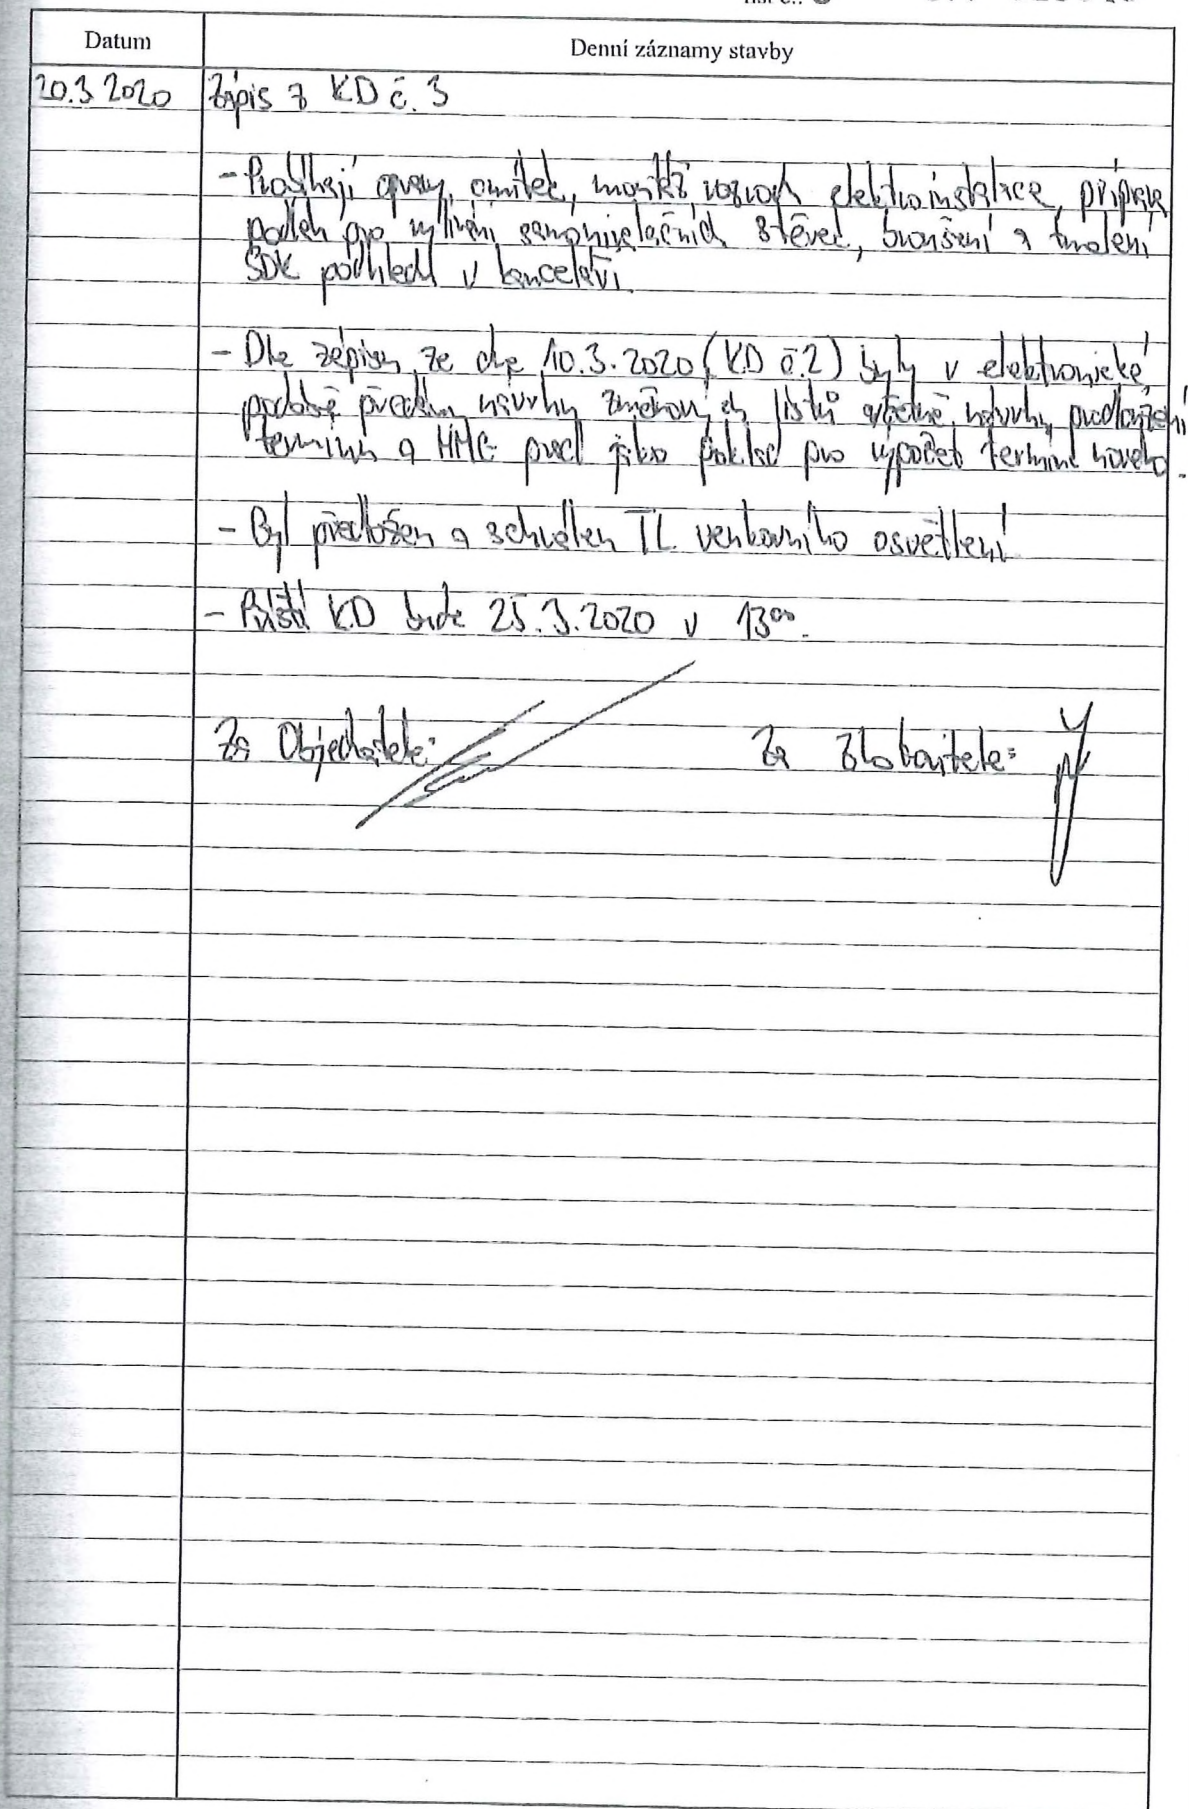 Datum
Denní záznamy stavby
20.3 2020 Zápis z KD č. 3
- Probíhají opravy omítek, montáž rozvodů elektroinstalace, příprava
podlah pro vylívání samonivelačních stěrek, broušení a tmelení
SDK podhledů v kanceláři.
- Dle zápisu ze dne 10.3.2020 (KD č.2) byly v elektronické
podobě předány návrhy změnových listů včetně návrhu prodloužení
termínu a HMG prací jako poklad pro výpočet termínu nového.
- Byl předložen a schválen TL venkovního osvětlení
- Příští KD bude 25.3.2020 v 13⁰⁰.
Za Objednatele: Za Zhotovitele: